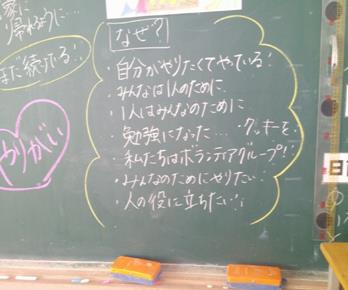 家に
帰れるように…
まだ続いている!
やりがい
なぜ?
・自分がやりたくてやっている!
・みんなは1人のために
・1人はみんなのために
・勉強になった… クッキーを
・私たちはボランティアグループ!!
・みんなのためにやりたい!
・人の役に立ちたい!